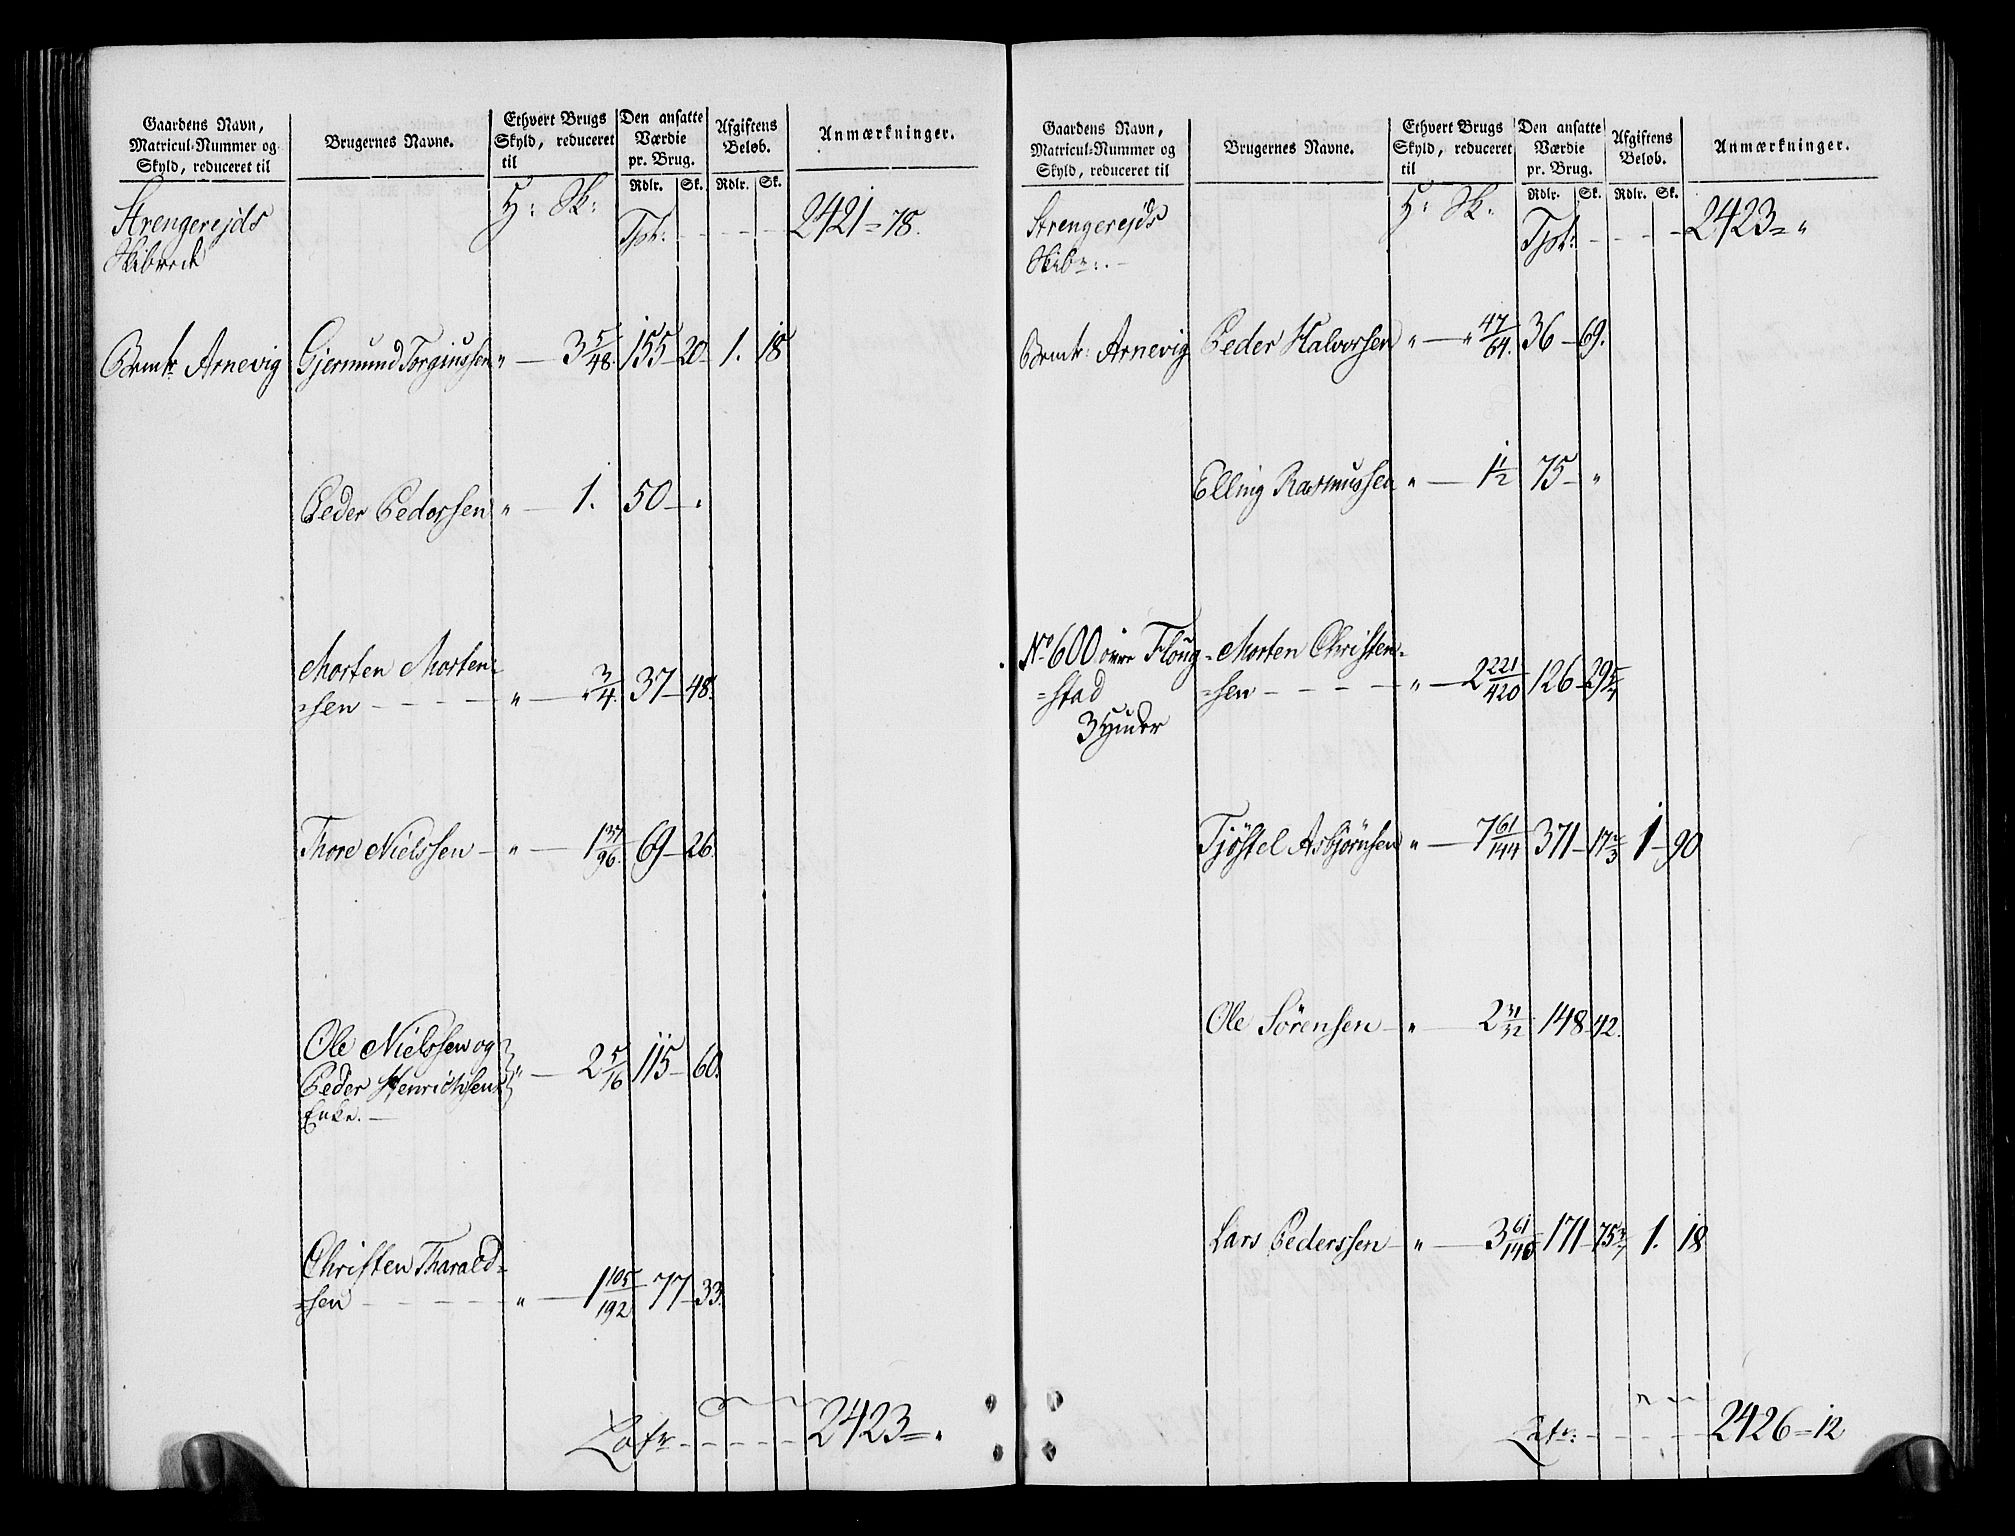 Gaardens Navn,
Matricul-Nummer og
Skyld, reduceret til
Brugernes Navne.
Ethvert Brugs
Skyld, reduceret
til
Den ansatte
Værdie
pr. Brug.
Rdlr. Sk.
Afgiftens
Beløb.
Rdlr. Sk.
Anmærkninger.
Strengerejds
Skibrede
H: Sk:
Tpt: - - - - 2421 = 78.
Arnevig Gjermund Torgiussen „ — 3 5/48. 155 - 20 - 1. 18
Peder Pedersen „ — 1. 50 - „
Morten Morten=
=sen - - - - „ — „ 3/4. 37 - 48.
Thore Nielssen - „ — 1 37/96. 69 - 26.
Ole Nielssen og
Peder Henrichsens „ — 2 5/16 115 - 60.
Enke. —
Christen Tharald=
=sen - - - - „ — 1 105/192 77 - 33.
Latr - - - - 2423 = „
Gaardens Navn,
Matricul-Nummer og
Skyld, reduceret til
Brugernes Navne.
Ethvert Brugs
Skyld, reduceret
til
Den ansatte
Værdie
pr. Brug.
Rdlr. Sk.
Afgiftens
Beløb.
Rdlr. Sk.
Anmærkninger.
Strengerejds
Skibr: —
H: Sk:
Tpt: - - - - 2423 = „
Arnevig Peder Halvorsen „ — „ 47/64. 36 - 69.
Elling Rasmussen „ — 1 1/2 75 - „
No 600 øvre Floug=
=stad
3 Huder
Morten Christen=
=sen - - - - „ — 2 221/420 126 - 29 5/7
Tjøstel Asbjørnsen „ — 7 61/144 371 - 17 2/3 1 - 90
Ole Sørensen - „ — 2 31/32 148 - 42.
Lars Pederssen - „ — 3 61/140 171 - 75 3/7 1. 18
Latr: - - - - 2426 = 12